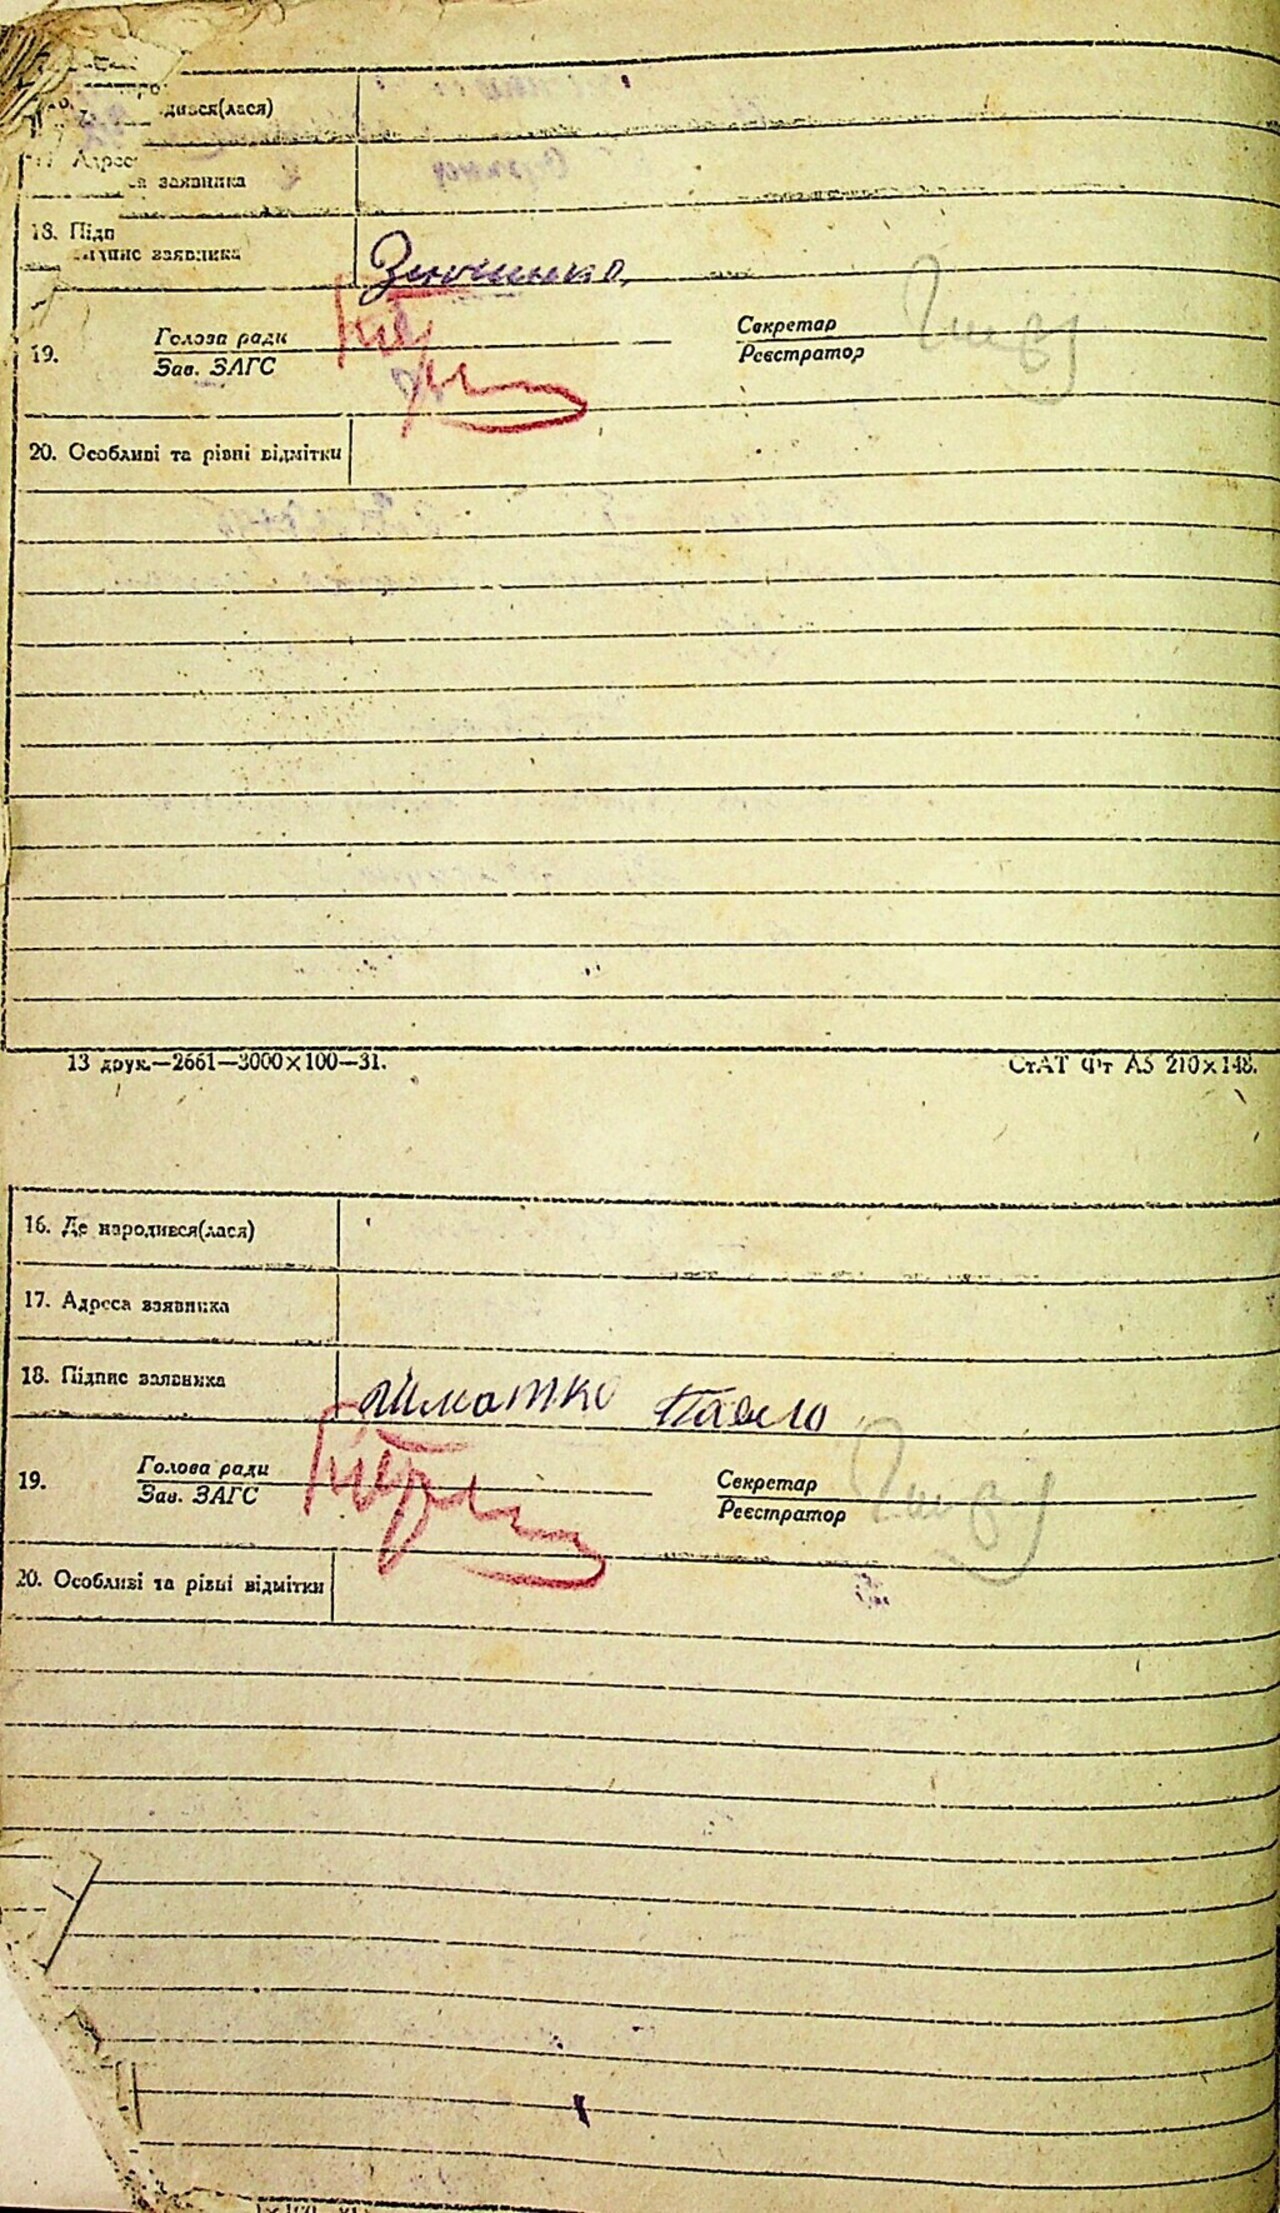 дився(лася)
17. Адрес
заявника
18. Підп
підпис заявника
19. Голова ради Секретар
Зав. ЗАГС Реєстратор
20. Особливі та рівні відмітки
13 друк.—2661—3000×100—31. СтАТ Фт А5 210×148.
16. Де народився(лася)
17. Адреса взявника
18. Підпис заявника Шматко Павло
19. Голова ради Секретар
Зав. ЗАГС Реєстратор
20. Особливі та рівні відмітки